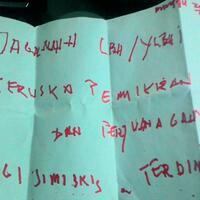 JAGALAH LBH/YLBHI
TERUSKA PEMIKIRAN
DAN PERJUANGAN
GI SIMISKIN TERDIN